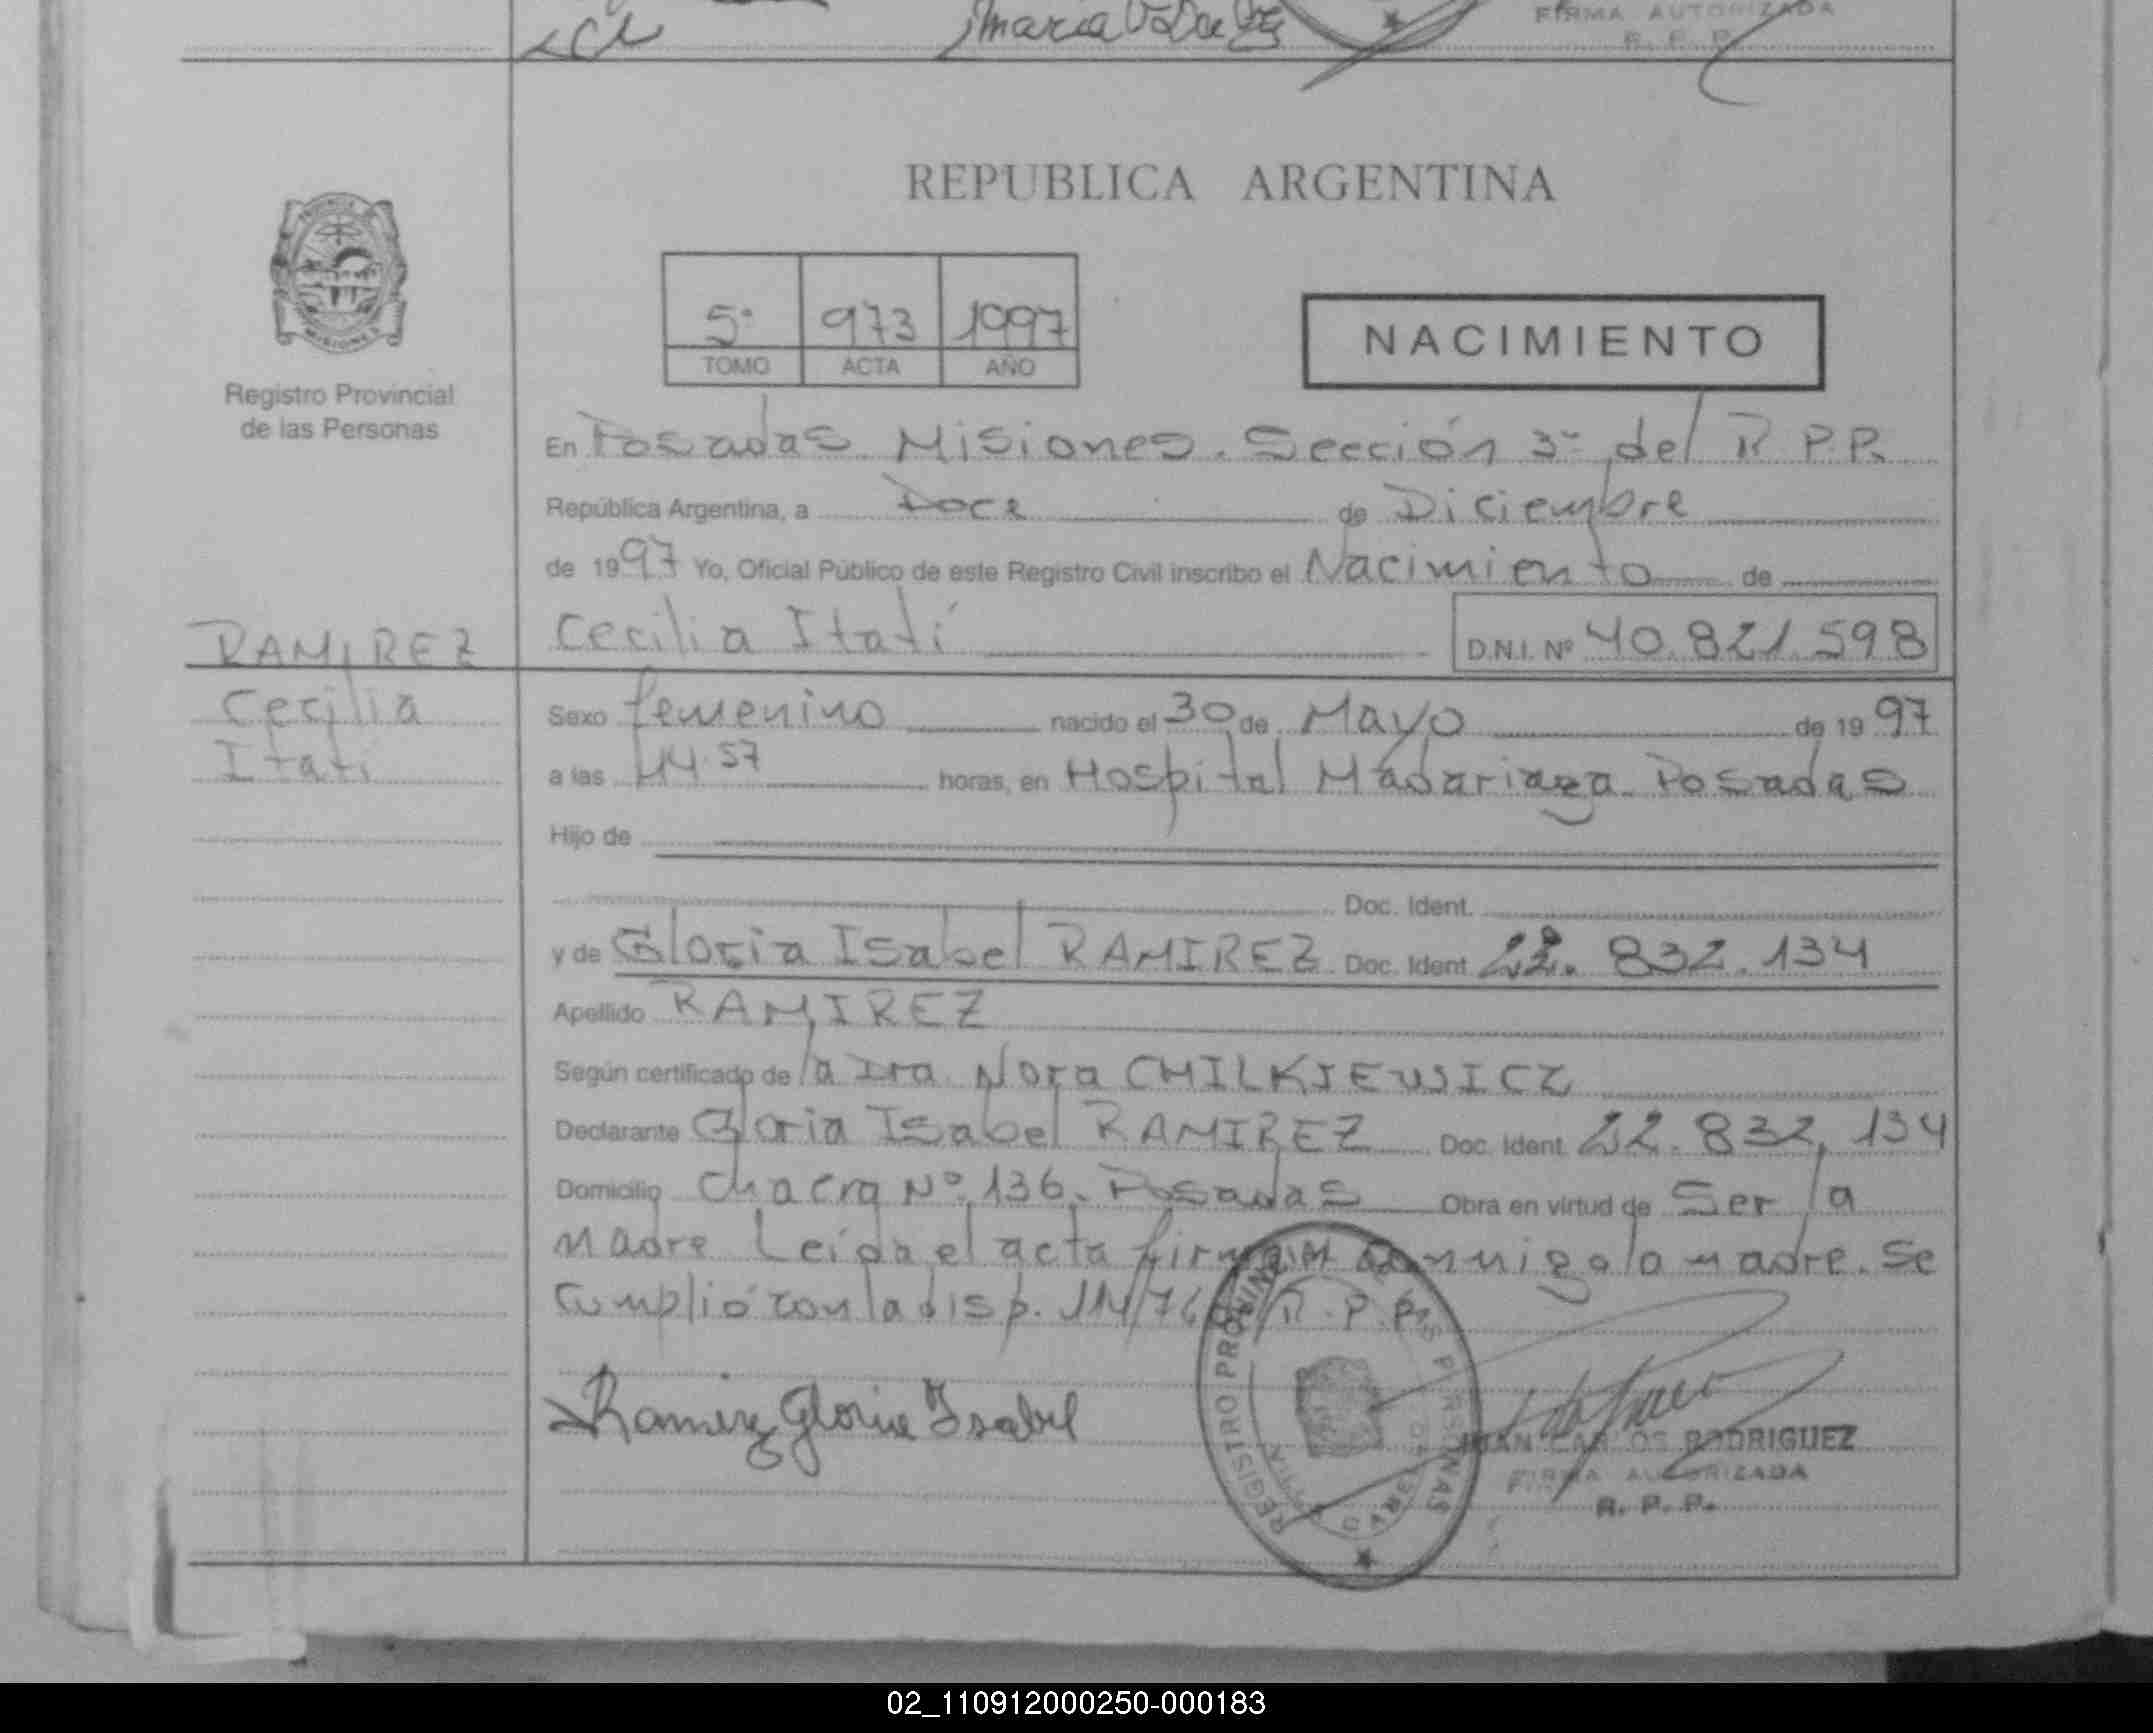 FIRMA AUTORIZADA
R. P. P.
REPUBLICA ARGENTINA
5º 973 1997
TOMO ACTA AÑO
NACIMIENTO
Registro Provincial
de las Personas
En Posadas Misiones. Sección 3ª del R.P.P.
República Argentina, a Doce de Diciembre
de 1997 Yo, Oficial Público de este Registro Civil inscribo el Nacimiento de
RAMIREZ
Cecilia Itatí
D.N.I. Nº 40.821.598
Cecilia
Itatí
Sexo femenino nacido el 30 de Mayo de 1997
a las 14.57 horas, en Hospital Madariaga. Posadas
Hijo de
Doc. Ident.
y de Gloria Isabel RAMIREZ Doc. Ident. 22.832.134
Apellido RAMIREZ
Según certificado de la Dra. Nora CHILKIEWICZ
Declarante Gloria Isabel RAMIREZ Doc. Ident. 22.832.134
Domicilio Chacra Nº 136. Posadas Obra en virtud de Ser la
Madre Leída el acta firman conmigo la madre. Se
cumplió con la disp. 114/76 R.P.P.
Ramirez Gloria Isabel
REGISTRO PROVINCIAL DE LAS PERSONAS
JUAN CARLOS RODRIGUEZ
FIRMA AUTORIZADA
R. P. P.
02_110912000250-000183